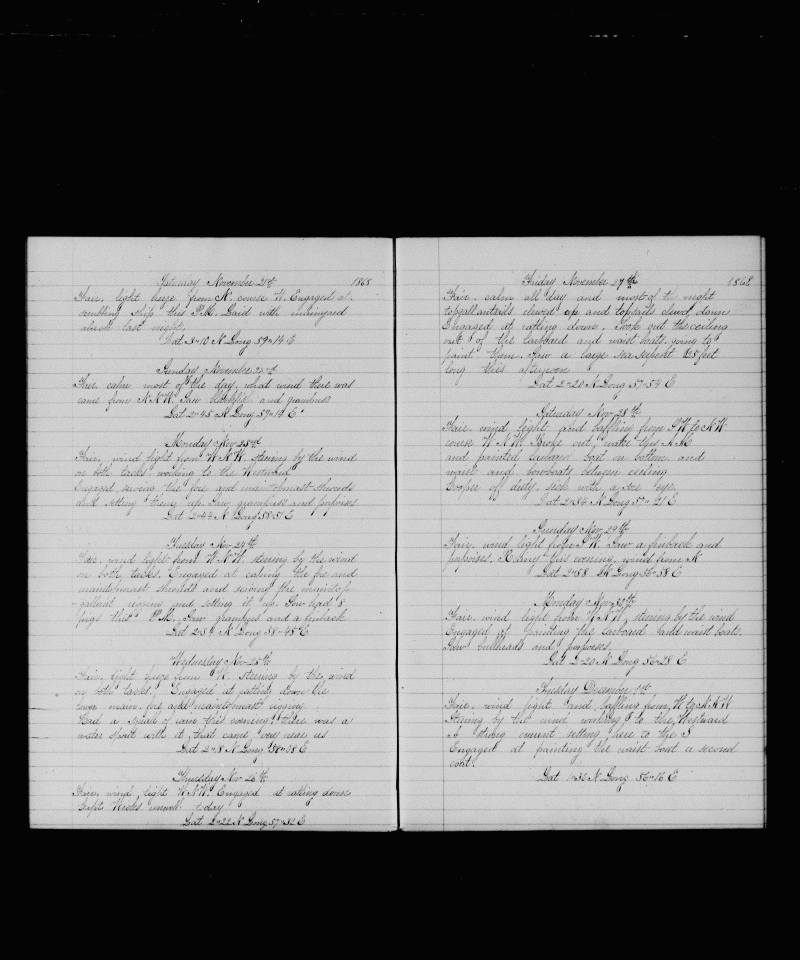 Saturday November 21st 1868
Fair, light breeze from N. course W. Engaged at
scrubbing ship this P.M. Laid with mainyard
aback last night.
Lat 3-10 N Long 59-14 E
Sunday November 22nd
Fair, calm most of the day, what wind there was
came from N.N.W. Saw blackfish and grampus
Lat 2-45 N Long 59-14 E
Monday Nov 23rd
Fair, wind light from W.N.W. steering by the wind
on both tacks working to the Westward
Engaged serving the fore and mainmast shrouds
and setting them up. Saw grampuses and porpoises
Lat 2-44 N Long 58-51 E
Tuesday Nov 24th
Fair, wind light from W.N.W. steering by the wind
on both tacks. Engaged at the fore and
mainmast shrouds and serving the maintop
gallant rigging and setting it up. Sow had 8
pigs this P.M. Saw grampuses and a finback
Lat N Long 58-45 E
Wednesday Nov 25th
Fair, light from W. steering by the wind
on both tacks. Engaged at ratling down the
lower main, fore and mainmast rigging
Had a squall of rain this evening. There was a
water spout with it, that came very near us
Lat 2-8 N Long 58-08 E
Thursday Nov 26th
Fair, wind light W.N.W. Engaged at ratling down
Capt Weeks unwell today
Lat 2-22 N Long 57-52 E
Friday November 27th 1868
Fair, calm all day and most of the night
topgallantsails clewed up and topsails clewed down
Engaged at ratling down. Took out the ceiling
out of the larboard and waist boats going to
paint them. Saw a large sea serpent feet
long this afternoon
Lat 2-20 N Long 57-54 E
Saturday Nov 28th
Fair, wind light and baffling from S.W. to N.W
course W.N.W. Broke out water this A.M
and painted larboard boat in bottom and
waist and bowboats between ceiling
Cooper off duty, sick with a sore leg.
Lat 2-34 N Long 57-21 E
Sunday Nov 29th
Fair, wind light from S.W. Saw a finback and
porpoises. Rainy this evening, wind from N
Lat 2-58 N Long 56-58 E
Monday Nov 30th
Fair, wind light from W.N.W, steering by the wind
Engaged at painting the larboard and waist boats.
Saw bullheads and porpoises.
Lat 2-20 N Long 56-28 E
Tuesday December 1st
Fair, wind light and baffling from W to N.N.W
Steering by the wind working to the Westward
A strong current setting here to the S
Engaged at painting the waist boat a second
coat.
Lat 1-36 N Long 56-16 E